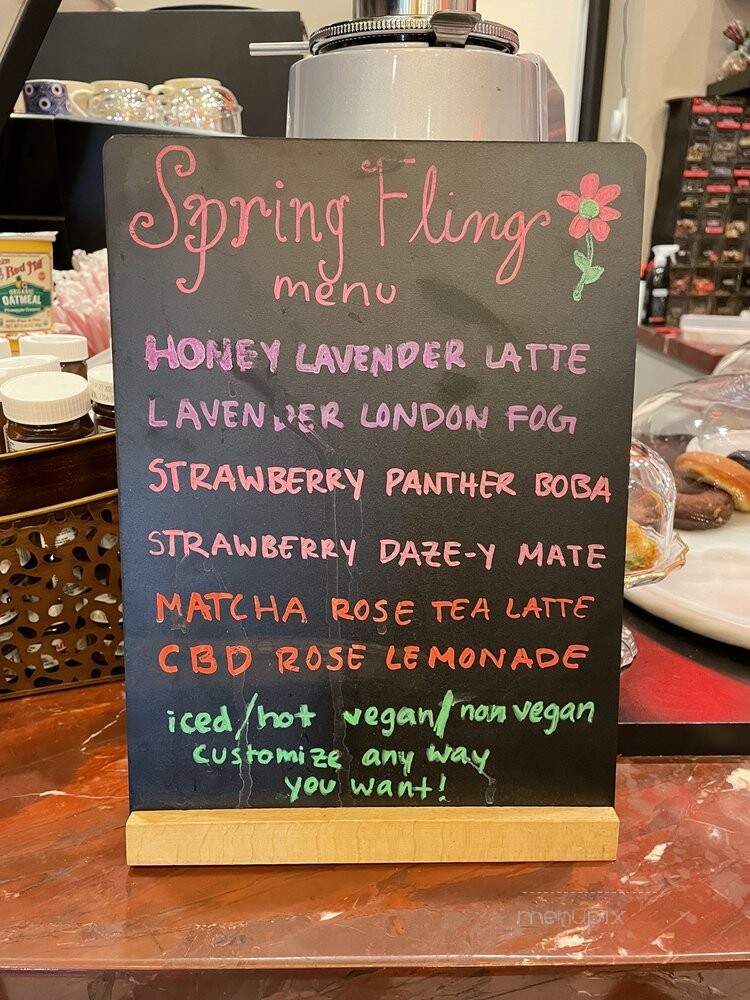 Spring Fling
menu
HONEY LAVENDER LATTE
LAVENDER LONDON FOG
STRAWBERRY PANTHER BOBA
STRAWBERRY DAZE-Y MATE
MATCHA ROSE TEA LATTE
CBD ROSE LEMONADE
iced/hot vegan/non vegan
customize any way
you want!
Red Mill
ORGANIC
OATMEAL
menupix